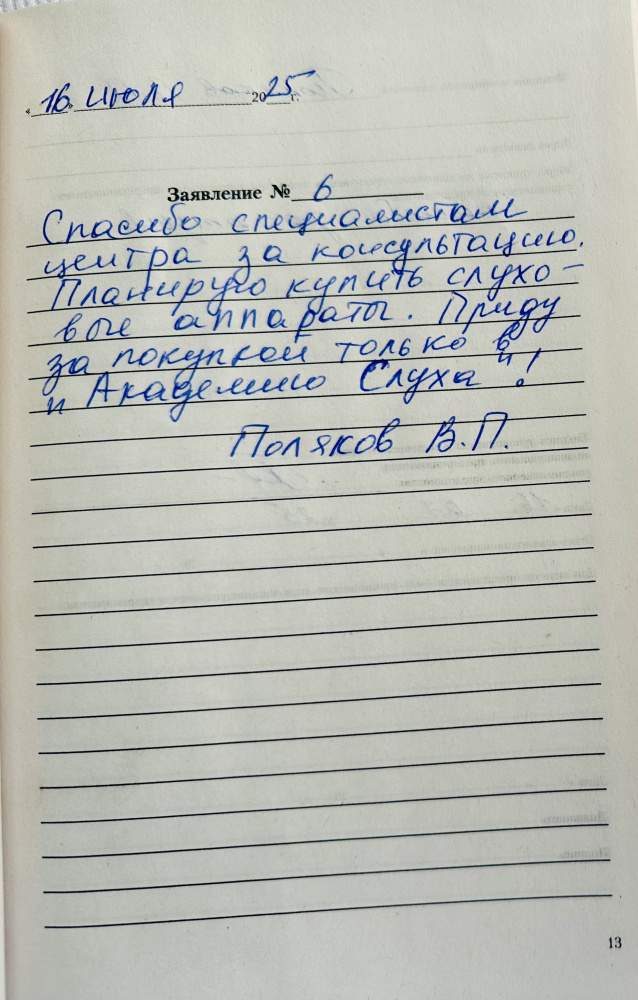 «16» июля 2025 г.
Заявление № 6
Спасибо специалистам
центра за консультацию.
Планирую купить слухо-
вые аппараты. Приду
за покупкой только в
"Академию Слуха"!
Поляков В.П.
13